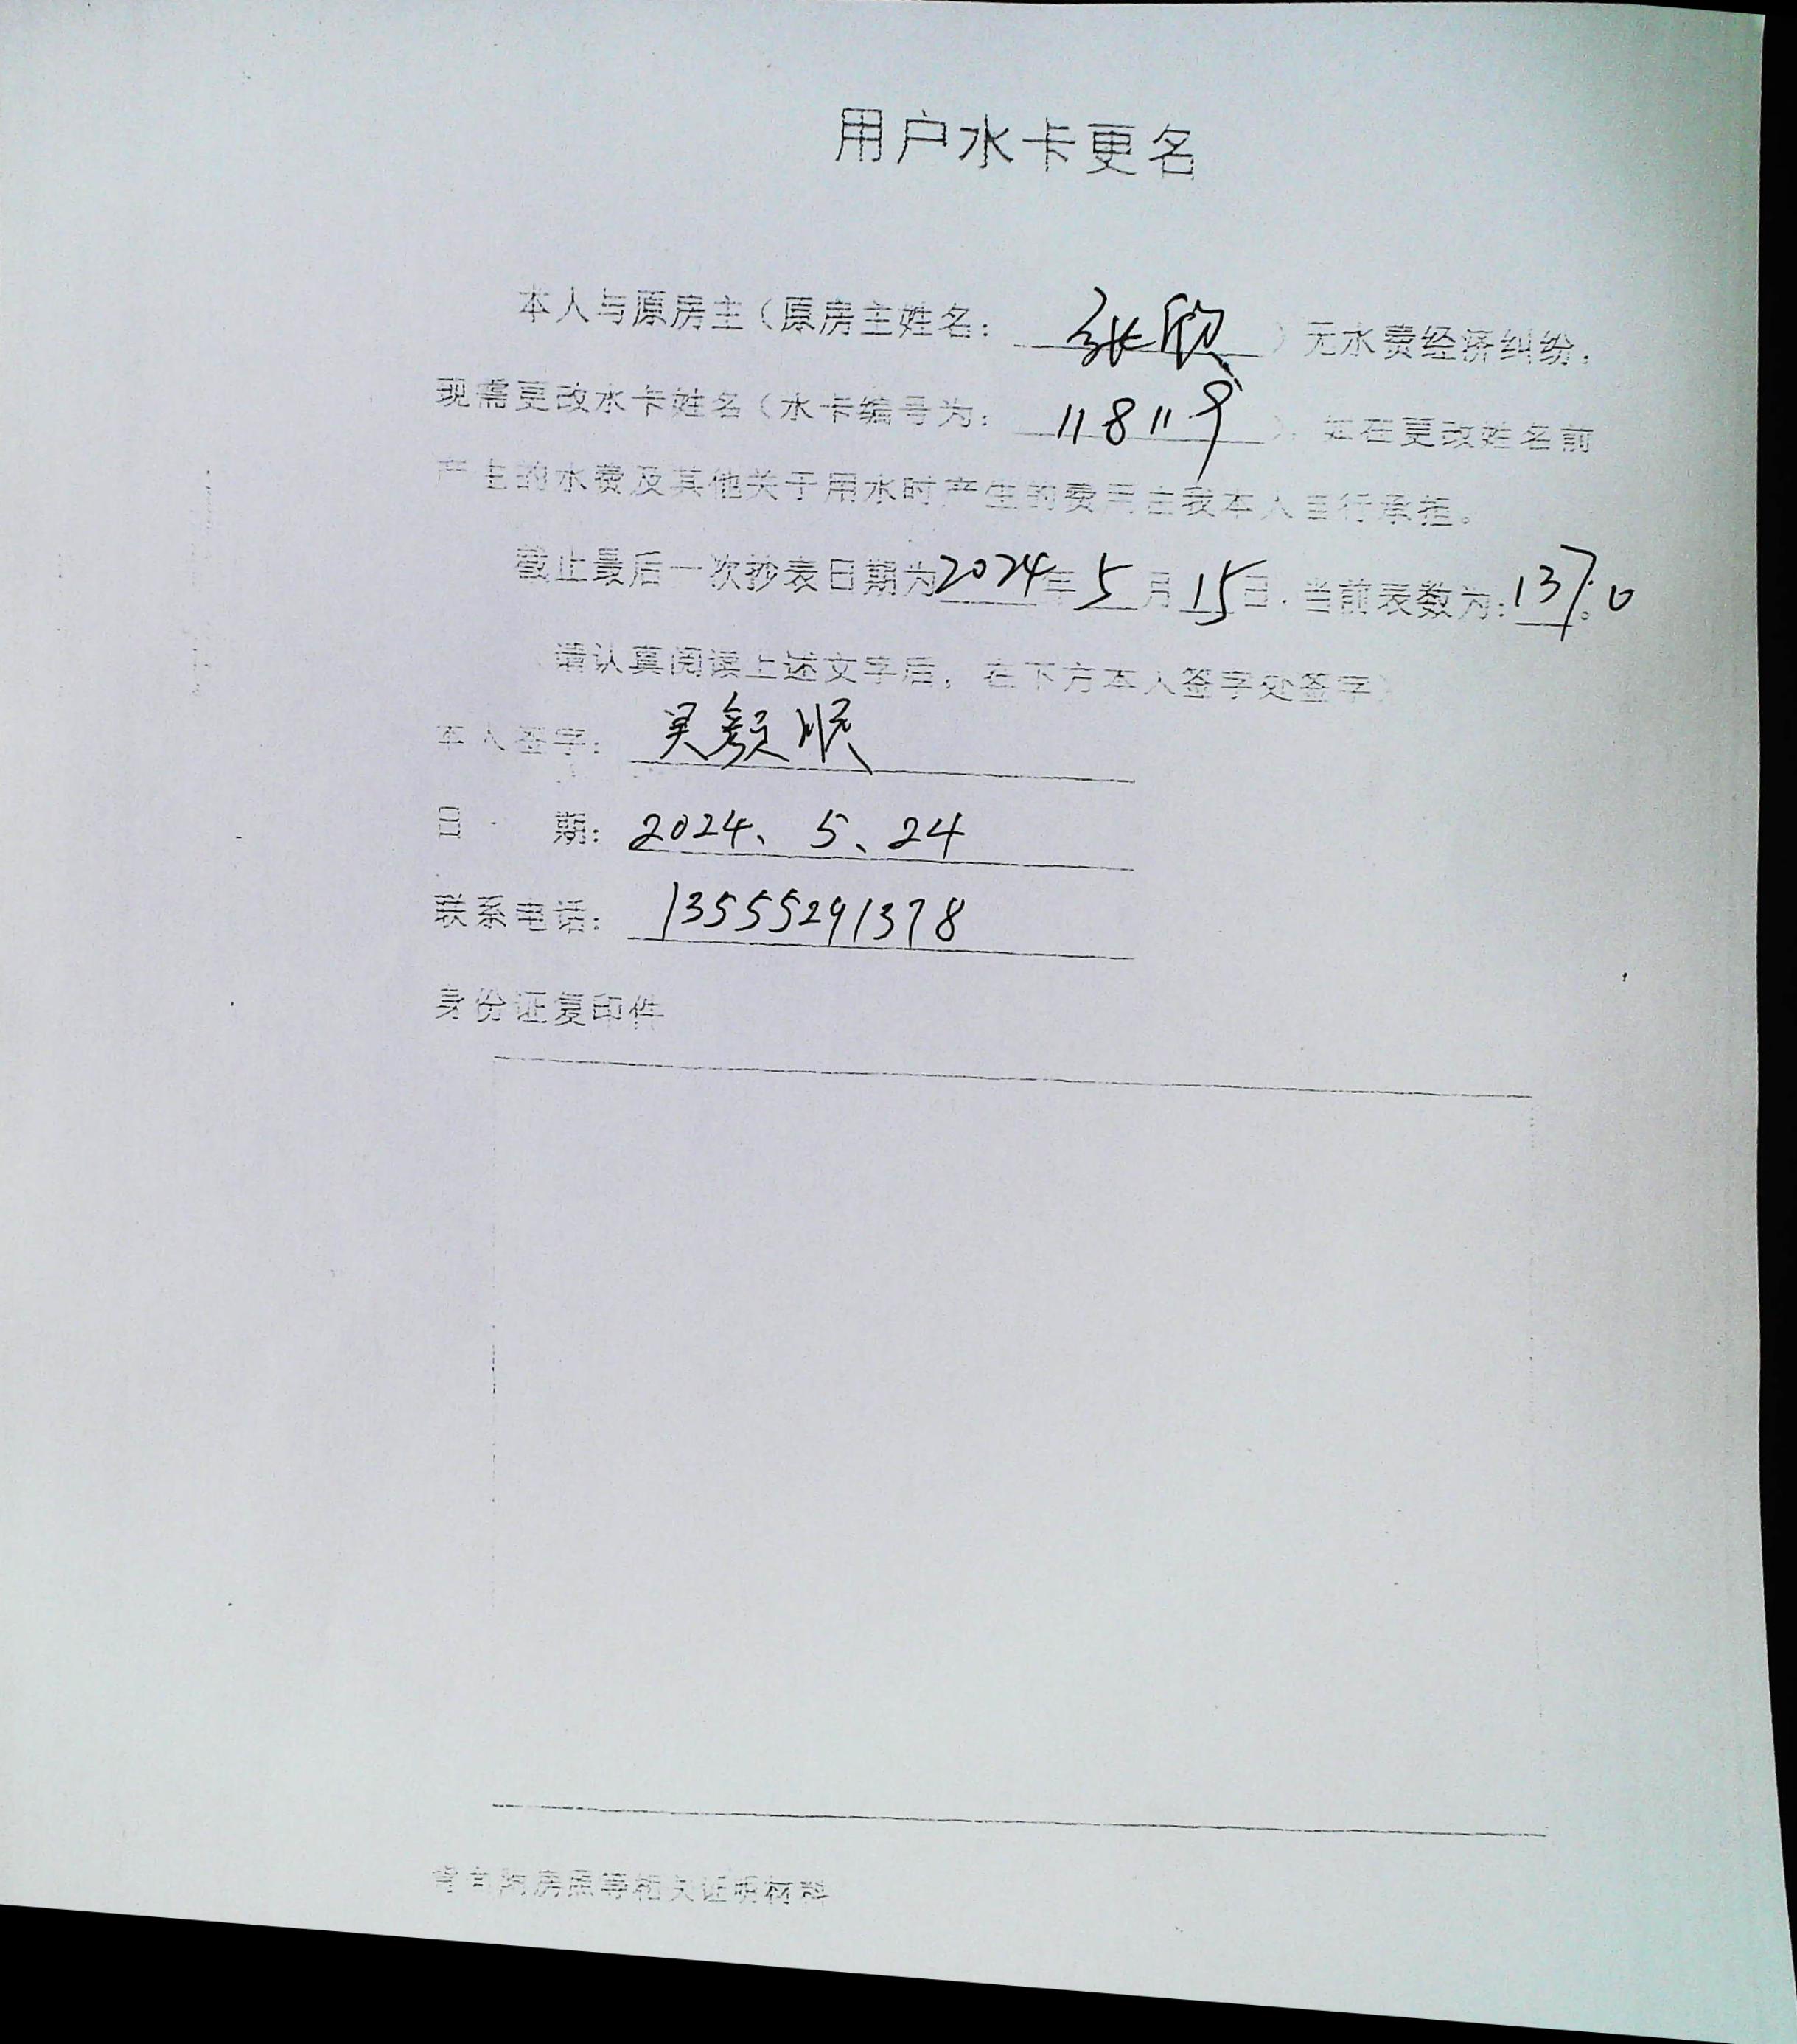 用户水卡更名
本人与原房主（原房主姓名：张欣）无水费经济纠纷，
现需更改水卡姓名（水卡编号为：118119），如在更改姓名前
产生的水费及其他关于用水时产生的费用由我本人自行承担。
截止最后一次抄表日期为2024年5月15日，当前表数为：1370。
（请认真阅读上述文字后，在下方本人签字处签字）
本人签字：吴颜顺
日 期：2024、5、24
联系电话：13555291378
身份证复印件
背面附房照等相关证明材料